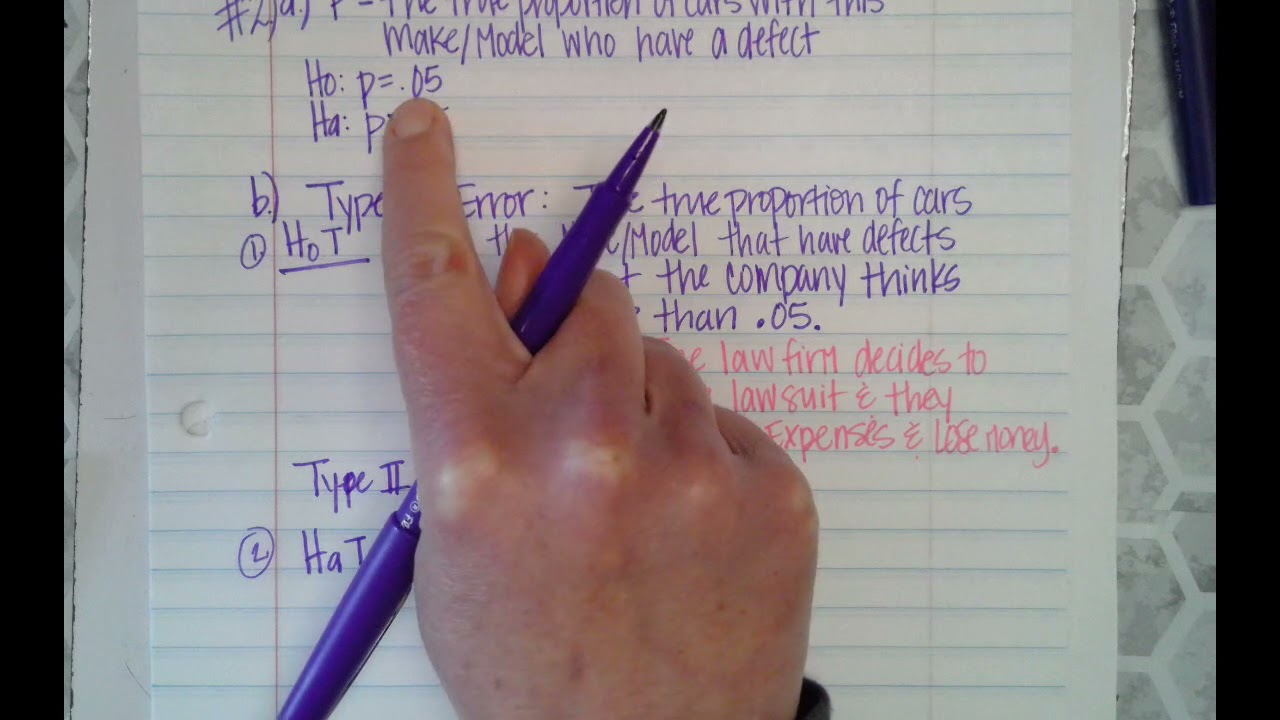 #2) a.) P = The true proportion of cars with this
make/Model who have a defect
Ho: p=.05
Ha: p
b.) Type Error: true proportion of cars
① HoT /Model that have defects
the company thinks
than .05.
law firm decides to
lawsuit & they
Expenses & lose money.
Type II
② HaT